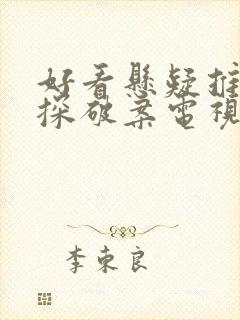 好看懸疑推
探破案電視
李東良